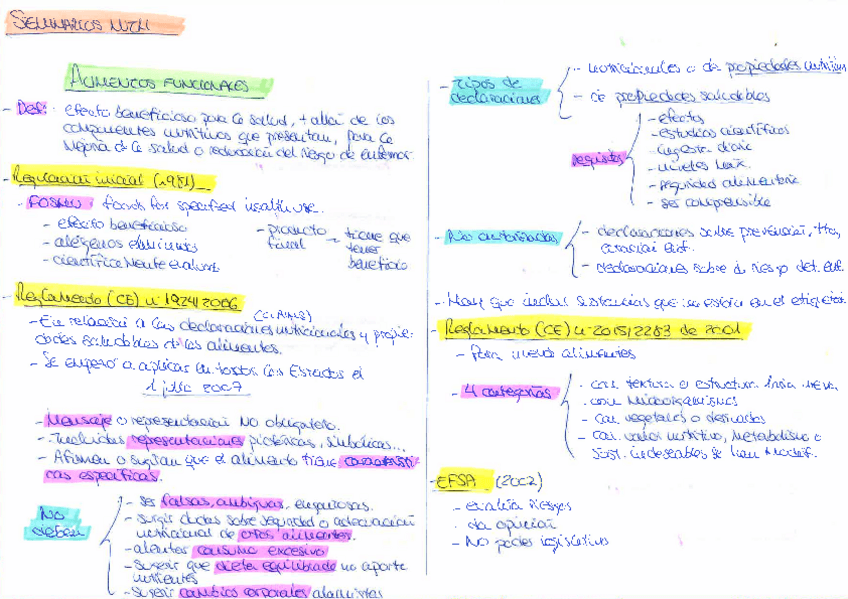 SEMINARIOS NUTH
ALIMENTOS FUNCIONALES
- Def: efecto beneficioso para la salud, + allá de los
componentes nutritivos que presentan, para la
mejora d la salud o reducción del riesgo de enfermar
- Regulación inicial (1981)
- FOSHU: foods for specified health use.
- efecto beneficioso
- alérgenos eliminados
- científicamente evaluados
- producto final → tiene que tener beneficio
- Reglamento (CE) nº 1924/2006
(CLAIMS)
- En relación a las declaraciones nutricionales y propie-
dades saludables d los alimentos.
- Se empezó a aplicar en todos los Estados el
1 julio 2007
- Mensaje o representación NO obligatorio.
- Incluidas representaciones pictóricas, simbólicas...
- Afirman o sugieran que el alimento tiene caracterís-
ticas específicas.
No deben
- ser falsas, ambiguas, engañosas.
- surgir dudas sobre seguridad o adecuación
nutricional de otros alimentos.
- alentar consumo excesivo
- sugerir que dieta equilibrada no aporte
nutrientes
- sugerir cambios corporales alarmistas
- Tipos de
declaraciones
- nutricionales o de propiedades nutritivas
- de propiedades saludables
requisitos
- efectos
- estudios científicos
- ingesta diaria
- niveles máx.
- seguridad alimentaria
- ser comprensible
- No autorizadas
- declaraciones sobre prevención, tto,
curación enf.
- declaraciones sobre ↓ riesgo det. enf.
- Hay que incluir sustancias que no están en el etiqueta
- Reglamento (CE) nº 2015/2283 de 2001
- Para nuevos alimentos
- 4 categorías
- con textura o estructura
- con microorganismos
- con vegetales o derivados
- con valor nutritivo, metabolismo o
sust. indeseables se han modif.
- EFSA (2002)
- evalúa riesgos
- da opinión
- No poder legislativo